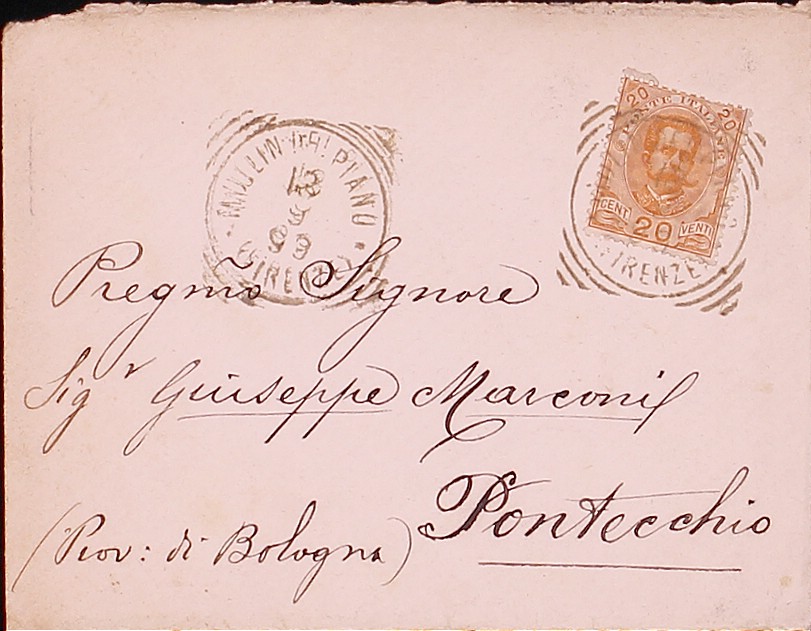 20 20
POSTE ITALIANE
CENT. 20 VENTI
FIRENZE
PIANO
(FIRENZE)
Pregmo Signore
Sigr Giuseppe Marconi
Pontecchio
(Prov: di Bologna)